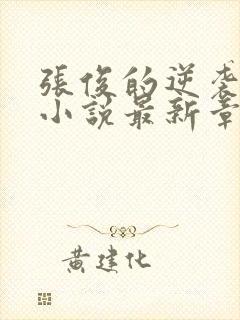 張俊的逆袭
小說最新章
黃建化